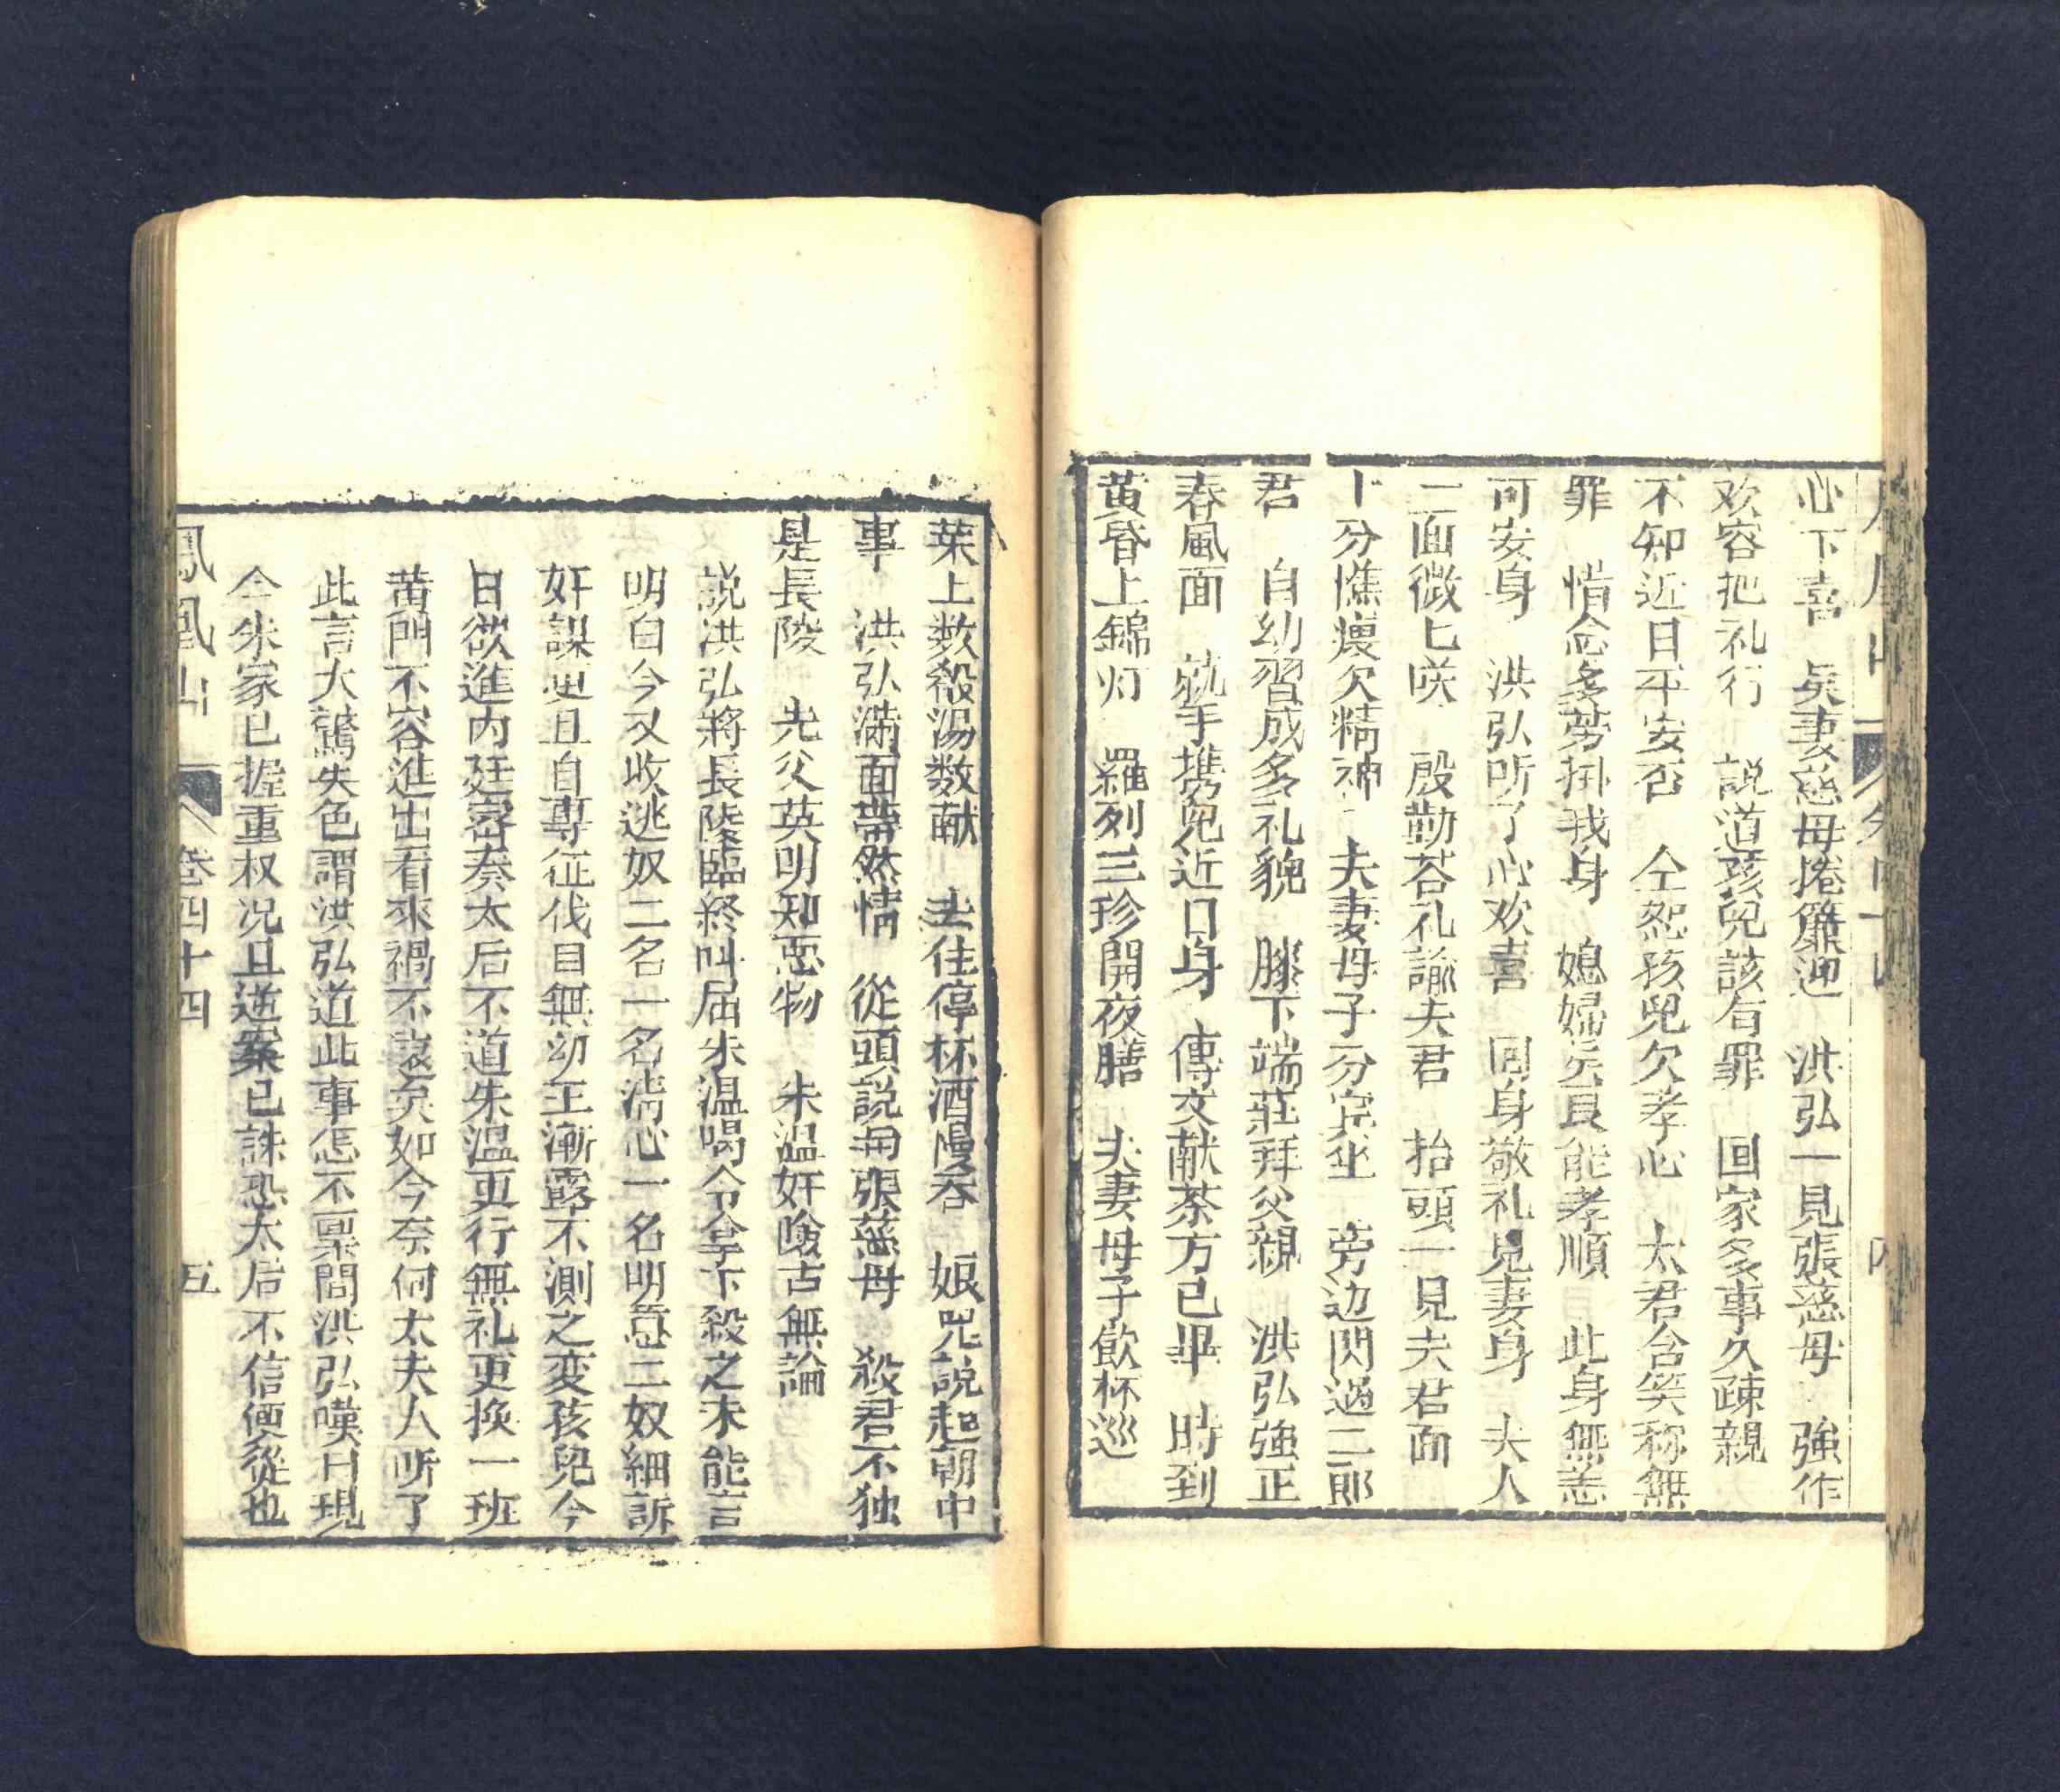 心下喜　矣妻慈母捲簾迎　洪弘一見張慈母　強作
欢容把礼行　説道孩兒該有罪　回家多事久疎親
不知近日平安否　仝恕孩兒欠孝心　太君含笑称無
罪　惟念多劳掛我身　媳婦矣良能孝順　此身無恙
可安身　洪弘听了心欢喜　回身敬礼見妻身　夫人
二面微匕咲　殷勤荅礼諭夫君　抬頭一見夫君面
十分憔瘦欠精神　夫妻母子分賔坐　旁边閃過二郎
君　自幼習成多礼貌　膝下端莊拜父親　洪弘強正
春風面　就手携児近口身　傳文献茶方已畢　時到
黄昏上錦灯　羅列三珍開夜膳　夫妻母子飲杯巡
葉上数殽湯数献　去住停杯酒慢吞　娘児説起朝中
事　洪弘滿面帶然情　從頭説與張慈母　殺君不独
是長陵　先父英明知惡物　朱温奸險古無論
説洪弘將長陵臨終叫屈朱温喝令拿下殺之未能言
明白今又收逃奴二名一名清心一名明意二奴細訴
奸謀更且自專征伐目無幼主漸露不測之变孩兒今
日欲進内廷密奏太后不道朱温更行無礼更换一班
黄門不容進出看來禍不遠矣如今奈何太夫人听了
此言大驚失色謂洪弘道此事怎不稟問洪弘嘆曰現
今朱家已握重权况且逆案已誅恐太后不信便從也
鳳凰山　卷四十四　五